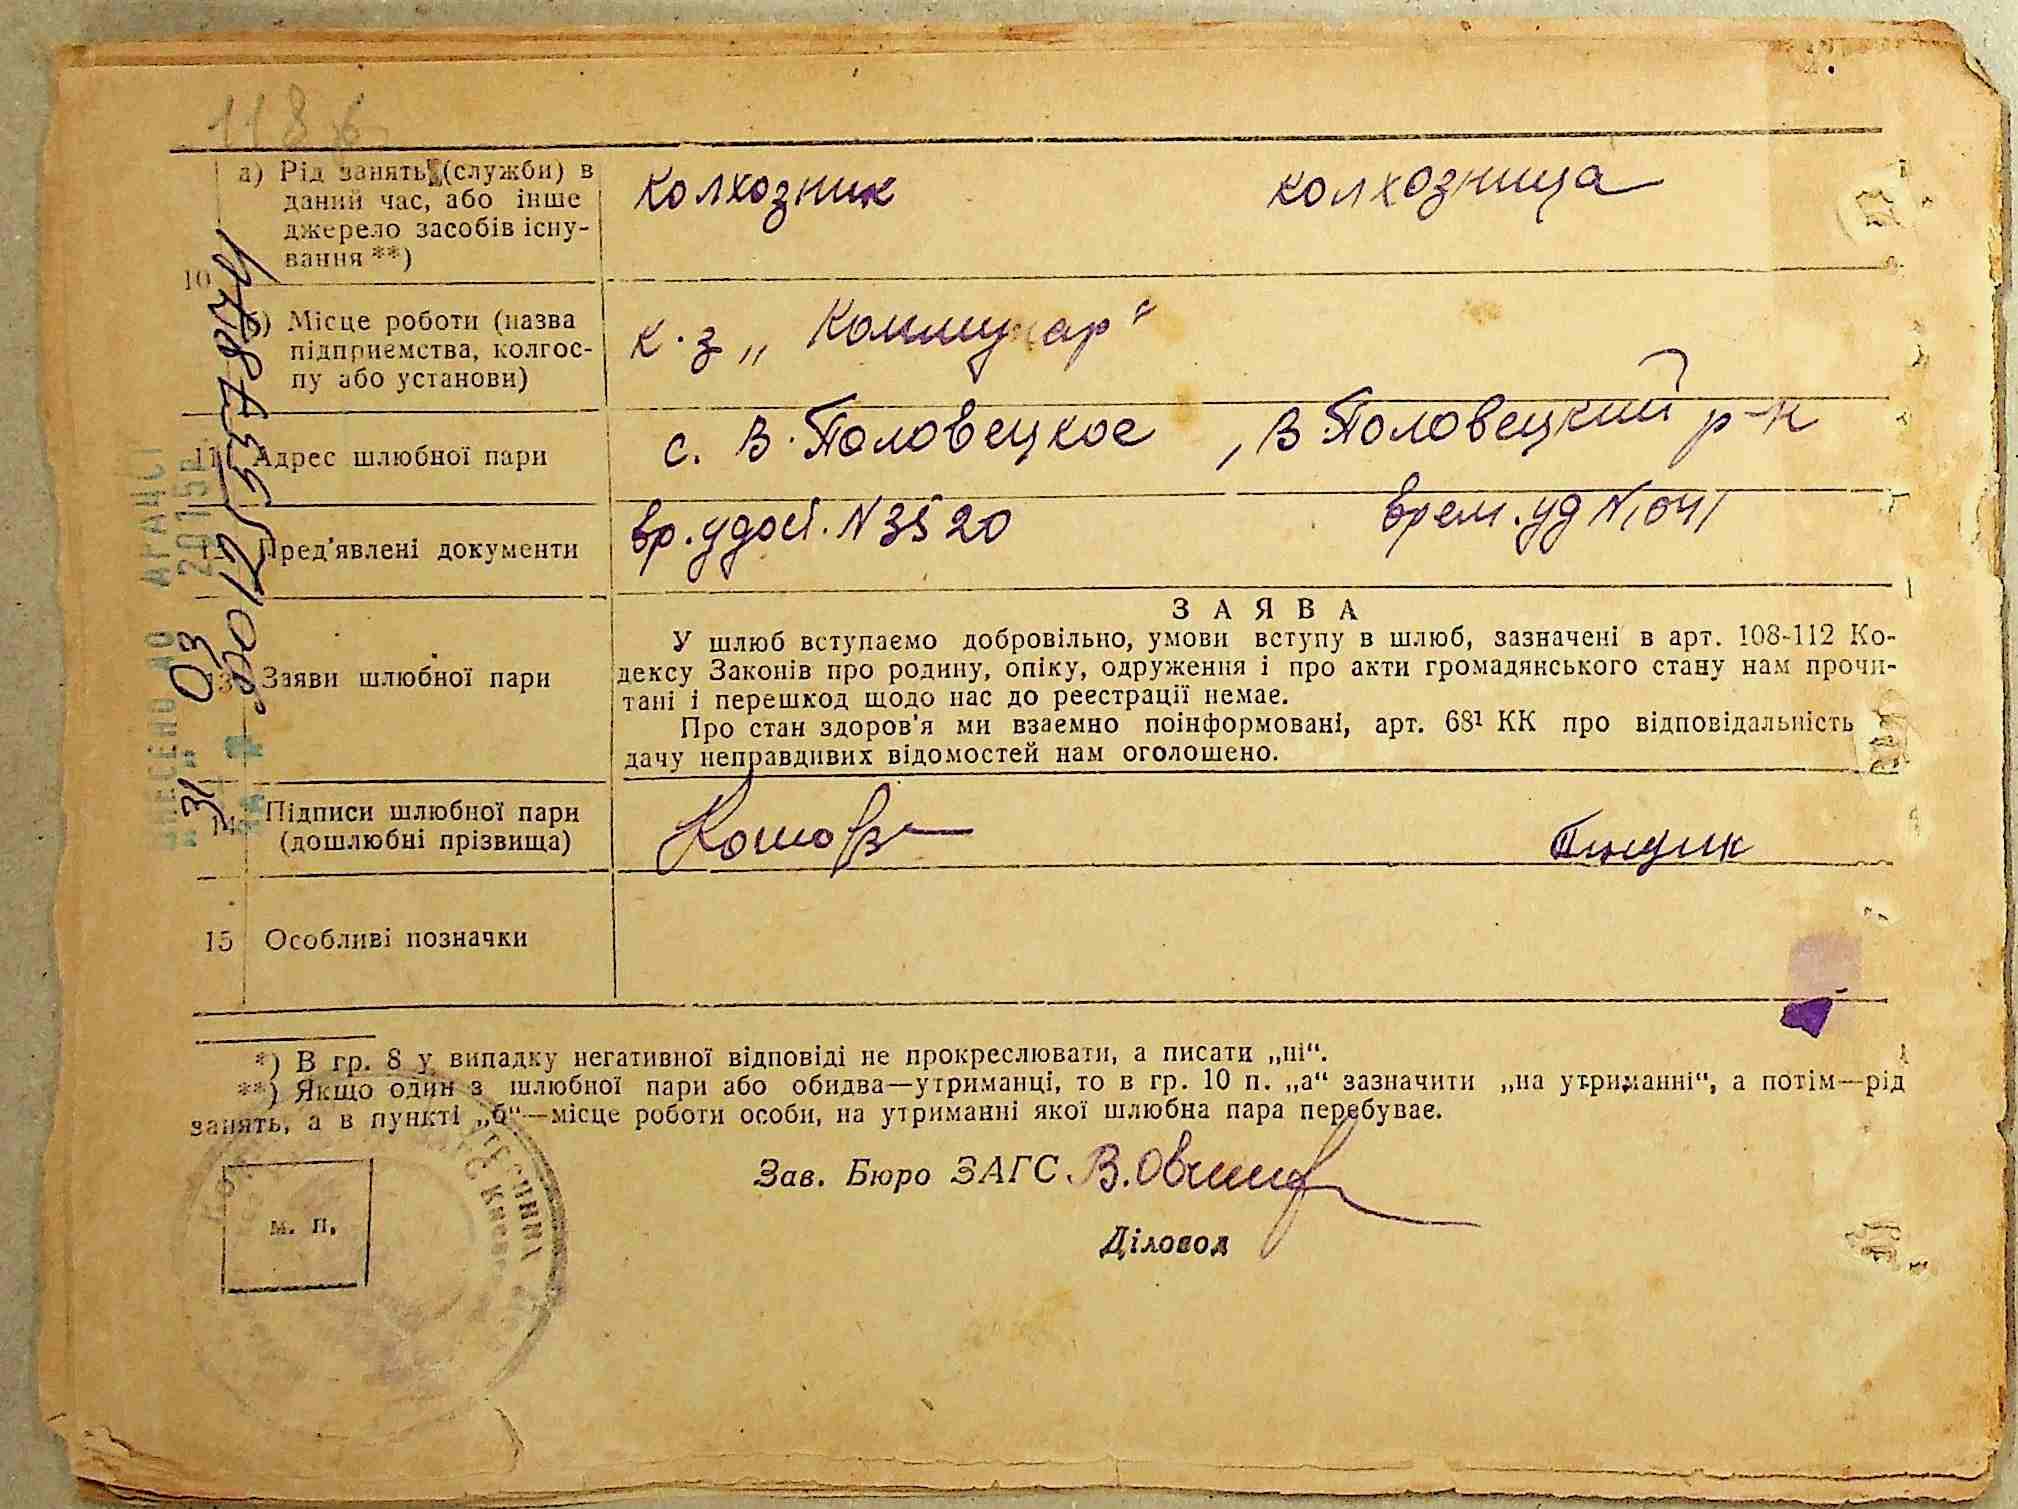 118
а) Рід занять (служби) в
даний час, або інше
джерело засобів існу-
вання **)
колхозник колхозница
10
б) Місце роботи (назва
підприємства, колгос-
пу або установи)
к.з „Коммунар"
11 Адрес шлюбної пари
с. В.Половецкое, В.Половецкий р-н
12 Пред'явлені документи
вр. удост. N 3520 врем. уд N 1041
13 Заяви шлюбної пари
ЗАЯВА
У шлюб вступаємо добровільно, умови вступу в шлюб, зазначені в арт. 108-112 Ко-
дексу Законів про родину, опіку, одруження і про акти громадянського стану нам прочи-
тані і перешкод щодо нас до реєстрації немає.
Про стан здоров'я ми взаємно поінформовані, арт. 68¹ КК про відповідальність
дачу неправдивих відомостей нам оголошено.
14 Підписи шлюбної пари
(дошлюбні прізвища)
15 Особливі позначки
*) В гр. 8 у випадку негативної відповіді не прокреслювати, а писати „ні“.
**) Якщо один з шлюбної пари або обидва—утриманці, то в гр. 10 п. „а“ зазначити „на утриманні“, а потім—рід
занять, а в пункті „б“—місце роботи особи, на утриманні якої шлюбна пара перебуває.
Зав. Бюро ЗАГС
Діловод
м. п.
ВНЕСЕНО ДО ДРАЦСГ
31 03 2015